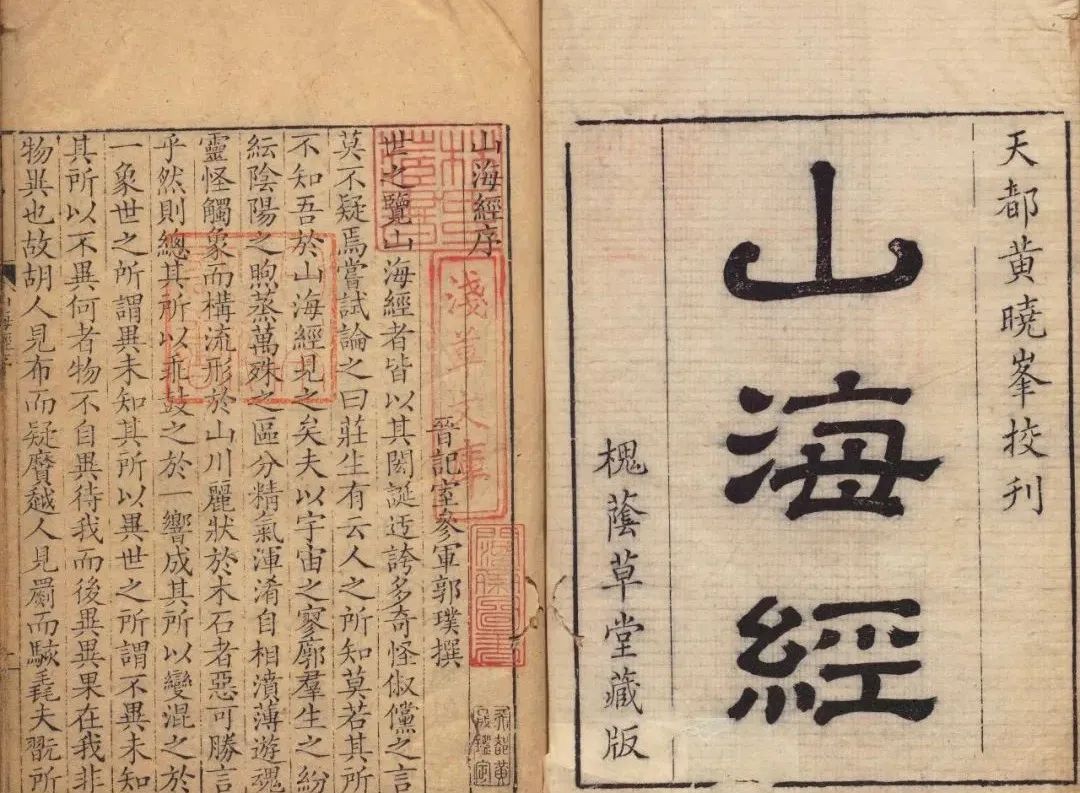 天都黄曉峯挍刊
山海經
槐蔭草堂藏版
山海經序
晉記室參軍郭璞撰
世之覽山海經者皆以其閎誕迃誇多奇怪俶儻之言
莫不疑焉嘗試論之曰莊生有云人之所知莫若其所
不知吾於山海經見之矣夫以宇宙之寥廓羣生之紛
紜陰陽之煦蒸萬殊之區分精氣渾淆自相濆薄遊魂
靈怪觸象而構流形於山川麗狀於木石者惡可勝言
乎然則總其所以乖鼓之於一響成其所以變混之於
一象世之所謂異未知其所以異世之所謂不異未知
其所以不異何者物不自異待我而後異異果在我非
物異也故胡人見布而疑黂越人見罽而駭毳夫翫所
淺草文庫